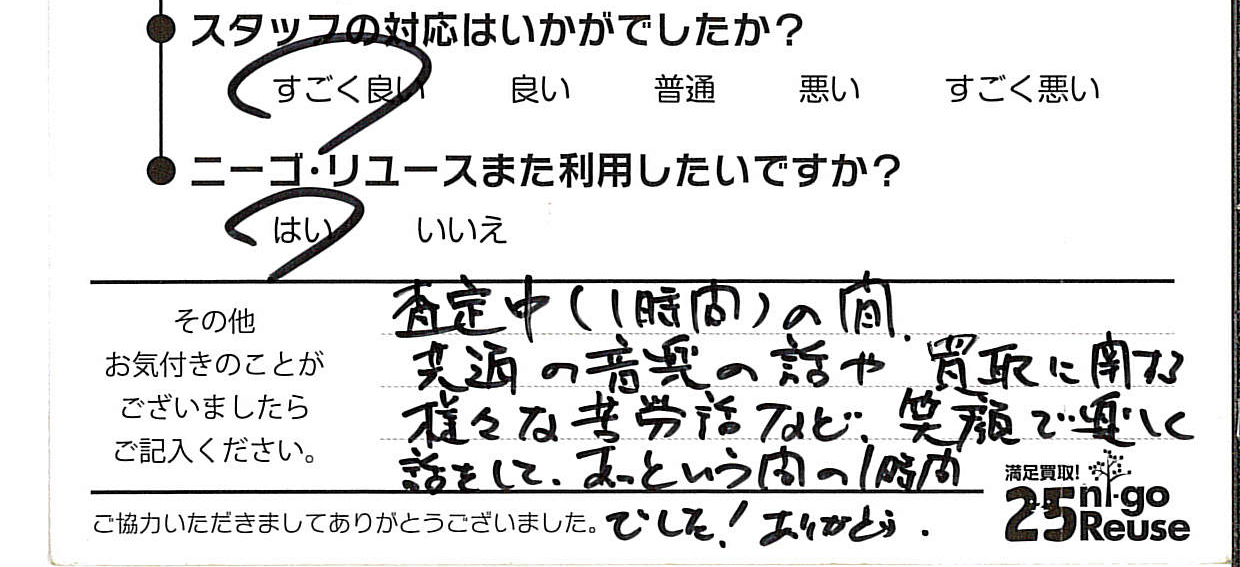 スタッフの対応はいかがでしたか？
すごく良い 良い 普通 悪い すごく悪い
ニーゴ・リユースまた利用したいですか？
はい いいえ
その他
お気付きのことが
ございましたら
ご記入ください。
査定中(1時間)の間、
共通の音楽の話や、買取に関する
様々な苦労話など、笑顔で楽しく
話をして、あっという間の1時間
でした！ありがとう.
満足買取!
25 ni-go
Reuse
ご協力いただきましてありがとうございました。